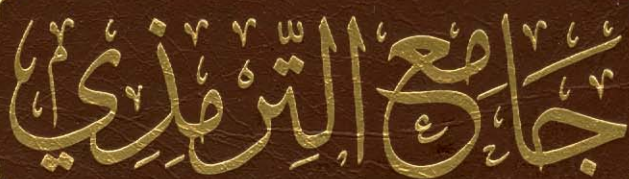 جَامِعُ التِّرْمِذِي